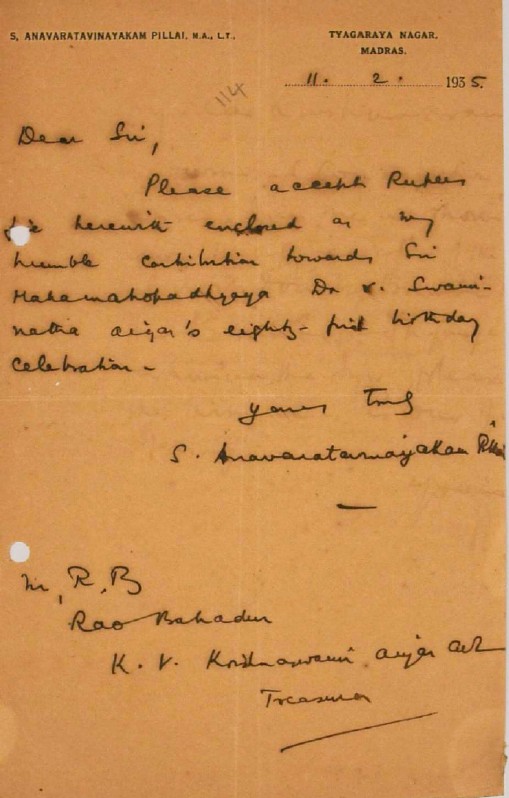 S. ANAVARATAVINAYAKAM PILLAI, M.A., L.T.,
TYAGARAYA NAGAR,
MADRAS.
11. 2. 1935.
114
Dear Sir,
Please accept Rupees
five herewith enclosed as my
humble contribution towards Sri
Mahamahopadhyaya Dr V. Swami-
natha Aiyar's eighty-first birthday
celebration.
Yours Truly
S. Anavaratavinayakam Pillai
R. B
Rao Bahadur
K. V. Krishnaswami Aiyar Avl
Treasurer